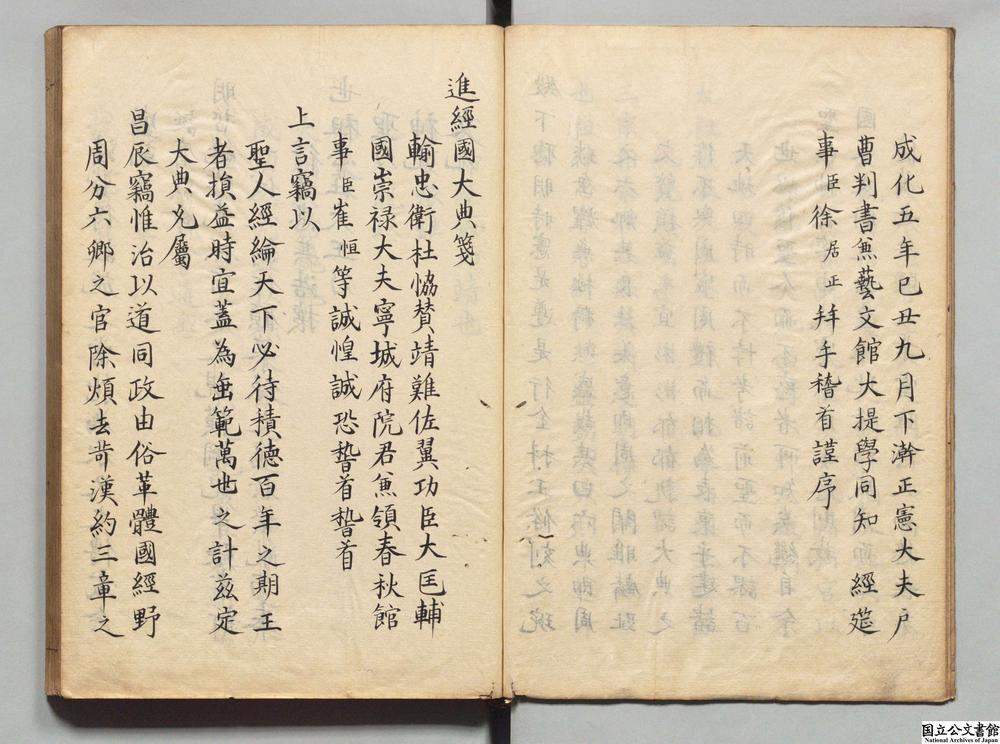 成化五年己丑九月下澣正憲大夫戶
曹判書兼藝文館大提學同知 經筵
事臣徐居正拜手稽首謹序
進經國大典箋
輸忠衛社恊賛靖難佐翼功臣大匡輔
國崇禄大夫寧城府院君兼領春秋館
事臣崔恒等誠惶誠恐𥡴首𥡴首
上言竊以
聖人經綸天下必待積德百年之期王
者損益時宜蓋為垂範萬世之計兹定
大典允屬
昌辰竊惟治以道同政由俗革體國經野
周分六卿之官除煩去苛漢約三章之
国立公文書館
National Archives of Japan